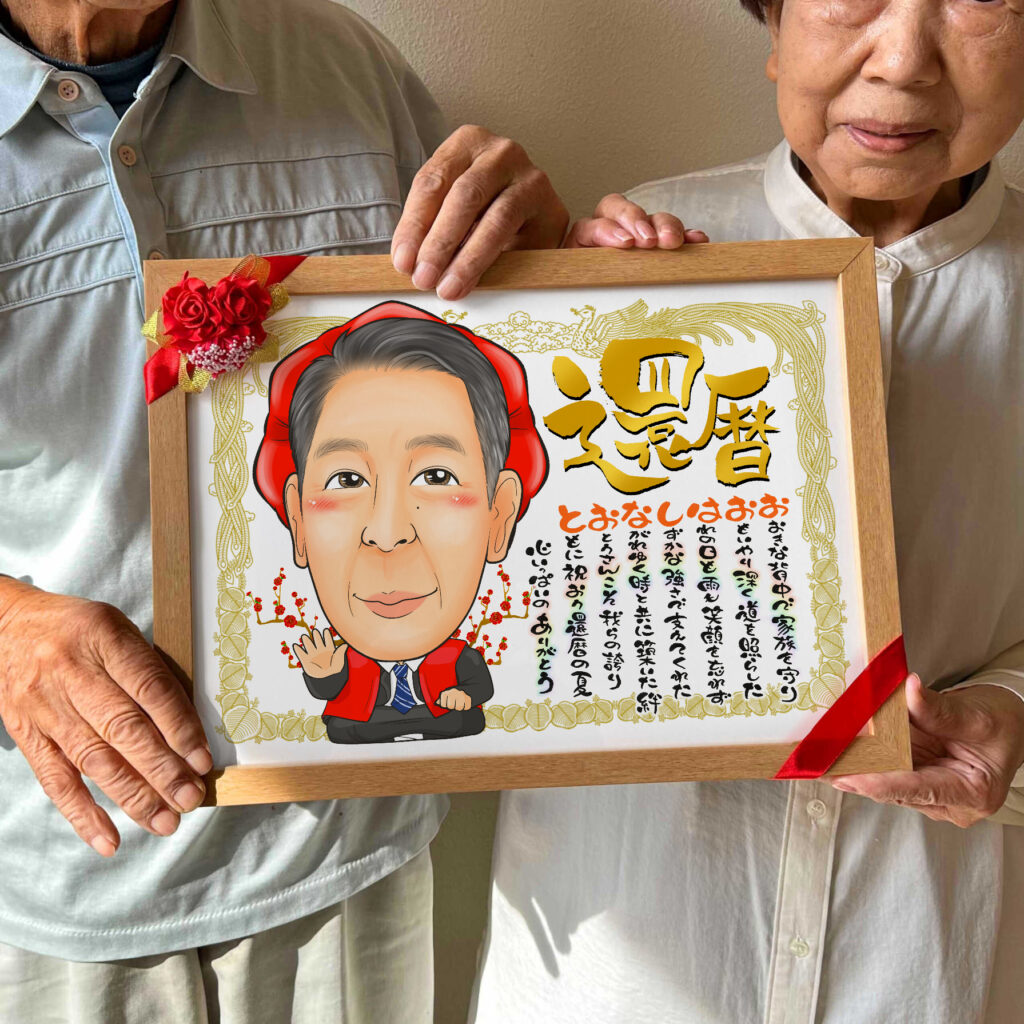 還暦
おおきな背中で家族を守り
おもいやり深く道を照らした
はれの日も雨も笑顔を忘れず
しずかな強さで支えてくれた
ながれゆく時と共に築いた絆
おとうさんこそ我らの誇り
ともに祝おう還暦の夏
心いっぱいのありがとう